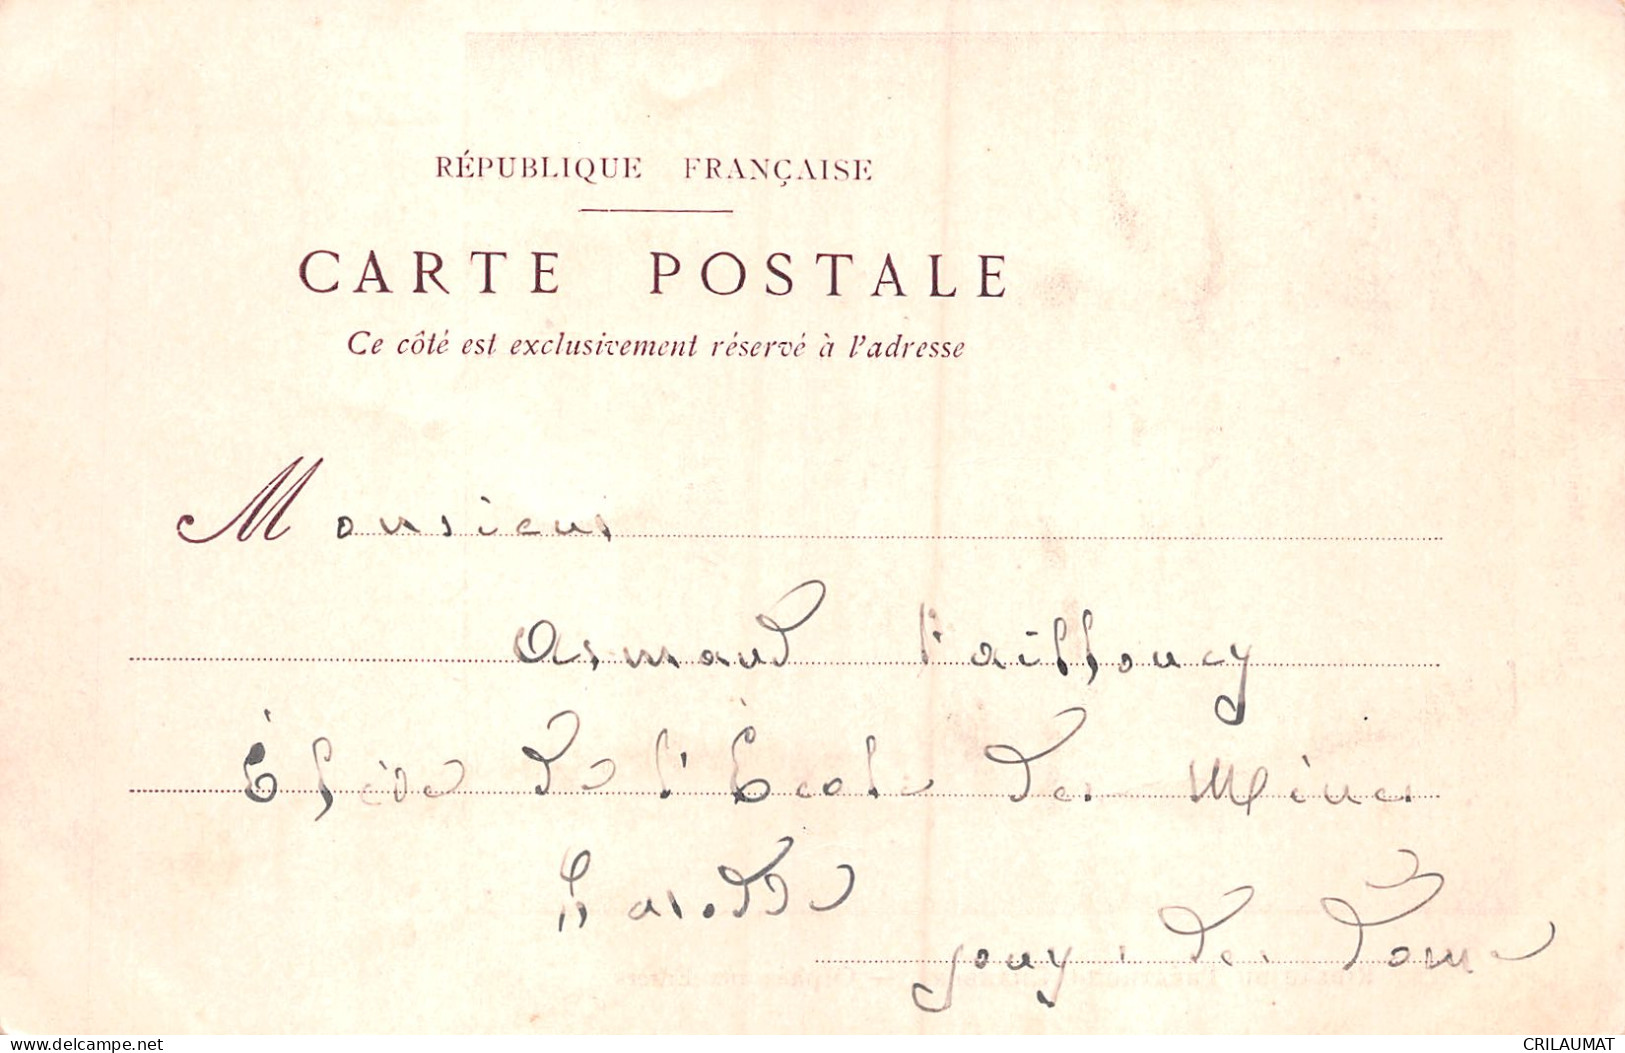 RÉPUBLIQUE FRANÇAISE
CARTE POSTALE
Ce côté est exclusivement réservé à l'adresse
Monsieur
Armand
Élève de l'École des Mines
de
www.delcampe.net
CRILAUMAT